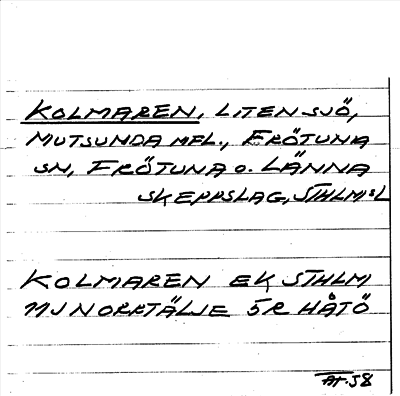 KOLMAREN, LITEN SJÖ,
MUTSUNDA MFL., FRÖTUNA
SN, FRÖTUNA O. LÄNNA
SKEPPSLAG, STHLMS L
KOLMAREN EK STHLM
11J NORRTÄLJE 5R HÅTÖ
AT. 58